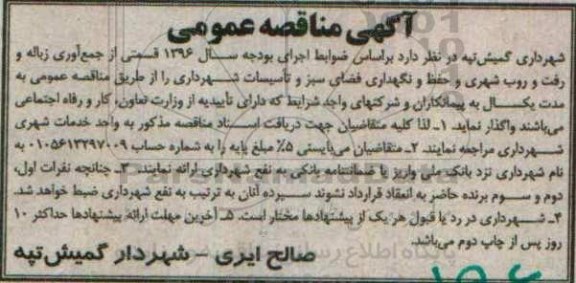 آگهی مناقصه عمومی
شهرداری گمیش‌تپه در نظر دارد براساس ضوابط اجرای بودجه سال ۱۳۹۶ قسمتی از جمع‌آوری زباله و
رفت و روب شهری و حفظ و نگهداری فضای سبز و تأسیسات شهرداری را از طریق مناقصه عمومی به
مدت یکسال به پیمانکاران و شرکتهای واجد شرایط که دارای تأییدیه از وزارت تعاون، کار و رفاه اجتماعی
می‌باشند واگذار نماید. ۱ـ لذا کلیه متقاضیان جهت دریافت اسناد مناقصه مذکور به واحد خدمات شهری
شهرداری مراجعه نمایند. ۲ـ متقاضیان می‌بایستی ۵٪ مبلغ پایه را به شماره حساب ۰۱۰۵۶۱۳۲۹۷۰۰۹ به
نام شهرداری نزد بانک ملی واریز یا ضمانتنامه بانکی به نفع شهرداری ارائه نمایند. ۳ـ چنانچه نفرات اول،
دوم و سوم برنده حاضر به انعقاد قرارداد نشوند سپرده آنان به ترتیب به نفع شهرداری ضبط خواهد شد.
۴ـ شهرداری در رد یا قبول هر یک از پیشنهادها مختار است. ۵ـ آخرین مهلت ارائه پیشنهادها حداکثر ۱۰
روز پس از چاپ دوم می‌باشد.
صالح ایری - شهردار گمیش‌تپه